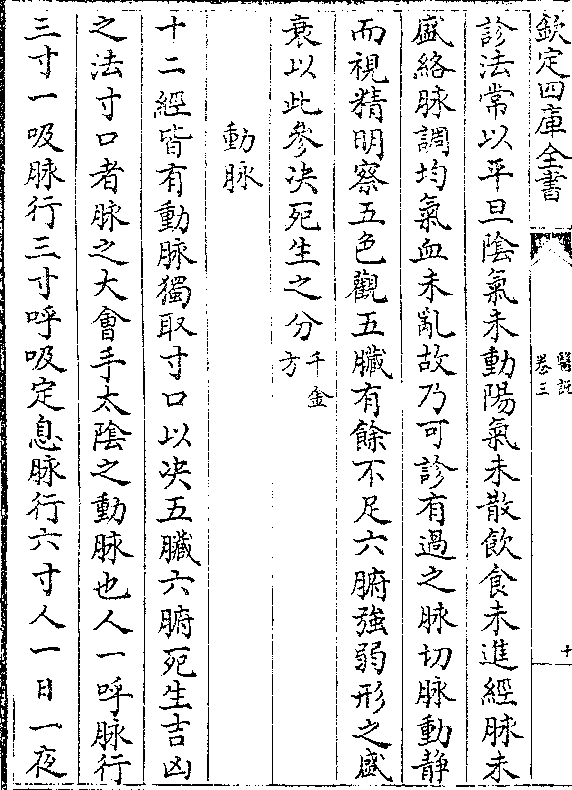 欽定四庫全書
醫説
卷三
十
診法常以平旦陰氣未動陽氣未散飲食未進經脉未
盛絡脉調均氣血未亂故乃可診有過之脉切脉動静
而視精明察五色觀五臟有餘不足六腑強弱形之盛
衰以此參决死生之分千金方
動脉
十二經皆有動脉獨取寸口以决五臟六腑死生吉凶
之法寸口者脉之大會手太陰之動脉也人一呼脉行
三寸一吸脉行三寸呼吸定息脉行六寸人一日一夜